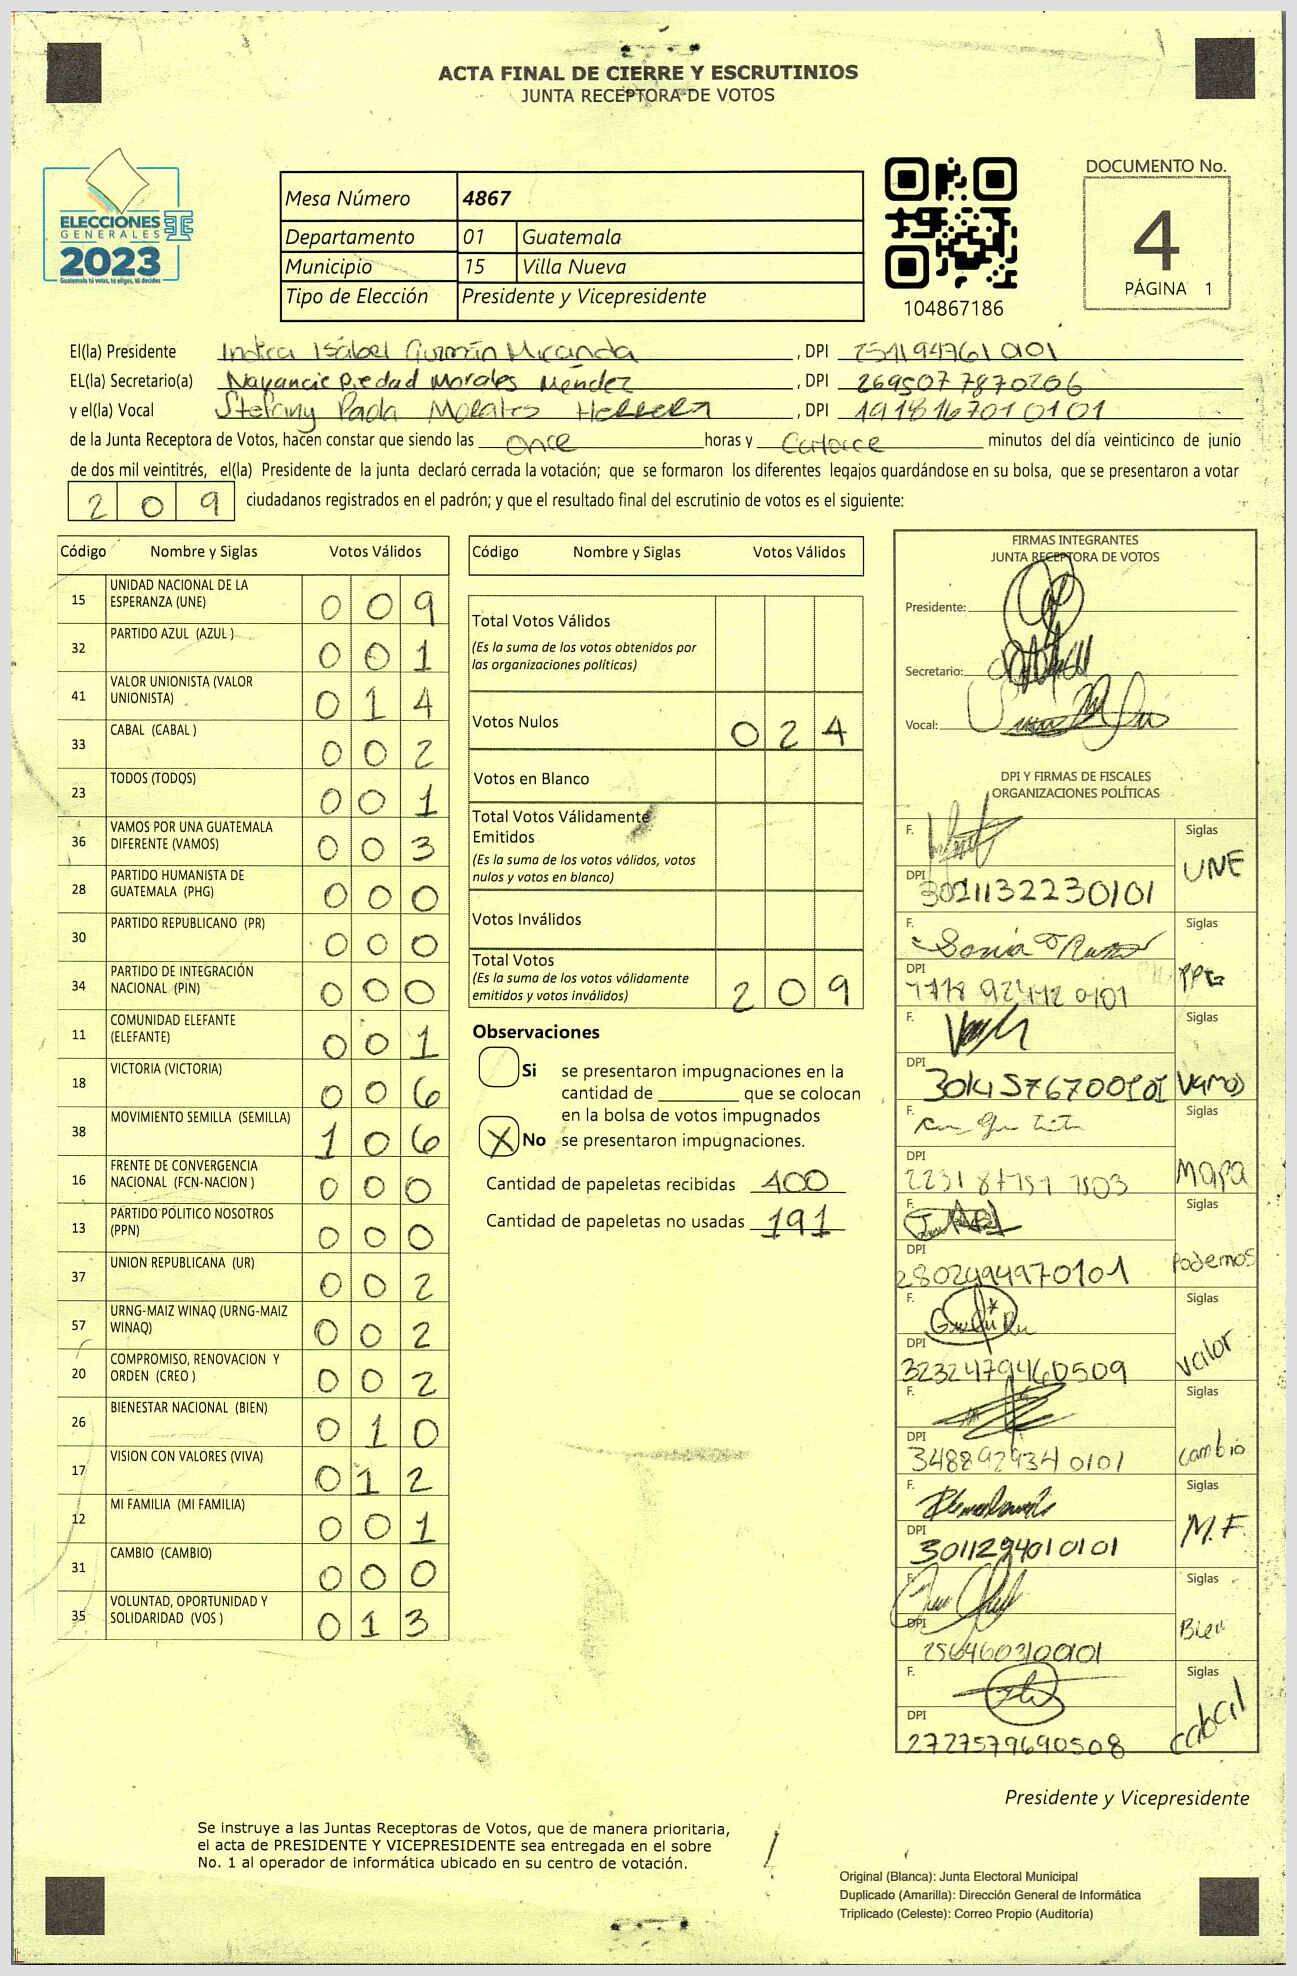 ACTA FINAL DE CIERRE Y ESCRUTINIOS
JUNTA RECEPTORA DE VOTOS
ELECCIONES
GENERALES
2023
Guatemala tú votas, tú eliges, tú decides
Mesa Número 4867
Departamento 01 Guatemala
Municipio 15 Villa Nueva
Tipo de Elección Presidente y Vicepresidente
104867186
DOCUMENTO No.
4
PÁGINA 1
El(la) Presidente Indira Isabel Guzmán Miranda, DPI
EL(la) Secretario(a) Nayancie Piedad Morales Méndez, DPI 2695077870206
y el(la) Vocal Stefany Paola Morales Herrera, DPI 1918167010101
de la Junta Receptora de Votos, hacen constar que siendo las Once horas y Catorce minutos del día veinticinco de junio
de dos mil veintitrés, el(la) Presidente de la junta declaró cerrada la votación; que se formaron los diferentes legajos guardándose en su bolsa, que se presentaron a votar
209 ciudadanos registrados en el padrón; y que el resultado final del escrutinio de votos es el siguiente:
Código Nombre y Siglas Votos Válidos
15 UNIDAD NACIONAL DE LA ESPERANZA (UNE) 009
32 PARTIDO AZUL (AZUL ) 001
41 VALOR UNIONISTA (VALOR UNIONISTA) 014
33 CABAL (CABAL ) 002
23 TODOS (TODOS) 001
36 VAMOS POR UNA GUATEMALA DIFERENTE (VAMOS) 003
28 PARTIDO HUMANISTA DE GUATEMALA (PHG) 000
30 PARTIDO REPUBLICANO (PR) 000
34 PARTIDO DE INTEGRACIÓN NACIONAL (PIN) 000
11 COMUNIDAD ELEFANTE (ELEFANTE) 001
18 VICTORIA (VICTORIA) 006
38 MOVIMIENTO SEMILLA (SEMILLA) 106
16 FRENTE DE CONVERGENCIA NACIONAL (FCN-NACION ) 000
13 PARTIDO POLITICO NOSOTROS (PPN) 000
37 UNION REPUBLICANA (UR) 002
57 URNG-MAIZ WINAQ (URNG-MAIZ WINAQ) 002
20 COMPROMISO, RENOVACION Y ORDEN (CREO ) 002
26 BIENESTAR NACIONAL (BIEN) 010
17 VISION CON VALORES (VIVA) 012
12 MI FAMILIA (MI FAMILIA) 001
31 CAMBIO (CAMBIO) 000
35 VOLUNTAD, OPORTUNIDAD Y SOLIDARIDAD (VOS ) 013
Código Nombre y Siglas Votos Válidos
Total Votos Válidos
(Es la suma de los votos obtenidos por
las organizaciones políticas)
Votos Nulos 024
Votos en Blanco
Total Votos Válidamente
Emitidos
(Es la suma de los votos válidos, votos
nulos y votos en blanco)
Votos Inválidos
Total Votos
(Es la suma de los votos válidamente
emitidos y votos inválidos) 209
Observaciones
Si se presentaron impugnaciones en la
cantidad de ________ que se colocan
en la bolsa de votos impugnados
X No se presentaron impugnaciones.
Cantidad de papeletas recibidas 400
Cantidad de papeletas no usadas 191
FIRMAS INTEGRANTES
JUNTA RECEPTORA DE VOTOS
Presidente:
Secretario:
Vocal:
DPI Y FIRMAS DE FISCALES
ORGANIZACIONES POLÍTICAS
F. Siglas
UNE
DPI 3021132230101
F. Siglas
DPI
F. Siglas
DPI Vamos
F. Siglas
DPI Mapa
F. Siglas
DPI 2802494970101 Podemos
F. Siglas
DPI 3232479460509 Valor
F. Siglas
DPI 3488929340101 cambio
F. Siglas
DPI 3011294010101 M.F
F. Siglas
DPI Bien
F. Siglas
DPI 2727579690508 cabal
Presidente y Vicepresidente
Se instruye a las Juntas Receptoras de Votos, que de manera prioritaria,
el acta de PRESIDENTE Y VICEPRESIDENTE sea entregada en el sobre
No. 1 al operador de informática ubicado en su centro de votación.
Original (Blanca): Junta Electoral Municipal
Duplicado (Amarilla): Dirección General de Informática
Triplicado (Celeste): Correo Propio (Auditoria)